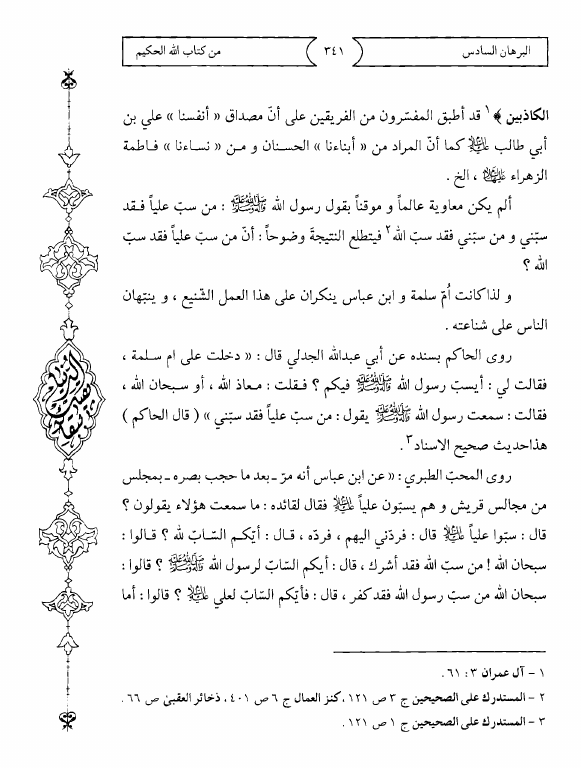 البرهان السادس
٣٤١
من كتاب الله الحكيم
الكاذبين ﴾١ قد أطبق المفسّرون من الفريقين على أنّ مصداق « أنفسنا » علي بن
أبي طالب عليه السلام كما أنّ المراد من « أبناءنا » الحسنان و مـن « نساءنا » فـاطمة
الزهراء عليها السلام ، الخ .
ألم يكن معاوية عالماً و موقناً بقول رسول الله صلى الله عليه وآله وسلم : من سبّ علياً فـقد
سبّني و من سبّني فقد سبّ الله٢ فيتطلع النتيجةَ وضوحاً : أنّ من سبّ علياً فقد سبّ
الله ؟
و لذا كانت اُمّ سلمة و ابن عباس ينكران على هذا العمل الشّنيع ، و ينبّهان
الناس على شناعته .
روى الحاكم بسنده عن أبي عبدالله الجدلي قال : « دخلت على ام سـلمة ،
فقالت لي : أيسبّ رسول الله صلى الله عليه وآله وسلم فيكم ؟ فـقلت : مـعاذ الله ، أو سـبحان الله ،
فقالت : سمعت رسول الله صلى الله عليه وآله وسلم يقول : من سبّ علياً فقد سبّني » ( قال الحاكم )
هذاحديث صحيح الاسناد٣.
روى المحبّ الطبري : « عن ابن عباس أنه مرّ ـ بعد ما حجب بصره ـ بمجلس
من مجالس قريش و هم يسبّون علياً عليه السلام فقال لقائده : ما سمعت هؤلاء يقولون ؟
قال : سبّوا علياً عليه السلام قال : فردّني اليهم ، فردّه ، قـال : أيّكـم السّـابّ لله ؟ قـالوا :
سبحان الله ! من سبّ الله فقد أشرك ، قال : أيكم السّابّ لرسول الله صلى الله عليه وآله وسلم ؟ قالوا :
سبحان الله من سبّ رسول الله فقد كفر ، قال : فأيّكم السّابّ لعلي عليه السلام ؟ قالوا : أما
١ – آل عمران ٣ : ٦١ .
٢ – المستدرك على الصحيحين ج ٣ ص ١٢١ ، كنز العمال ج ٦ ص ٤٠١ ، ذخائر العقبىٰ ص ٦٦ .
٣ – المستدرك على الصحيحين ج ١ ص ١٢١ .